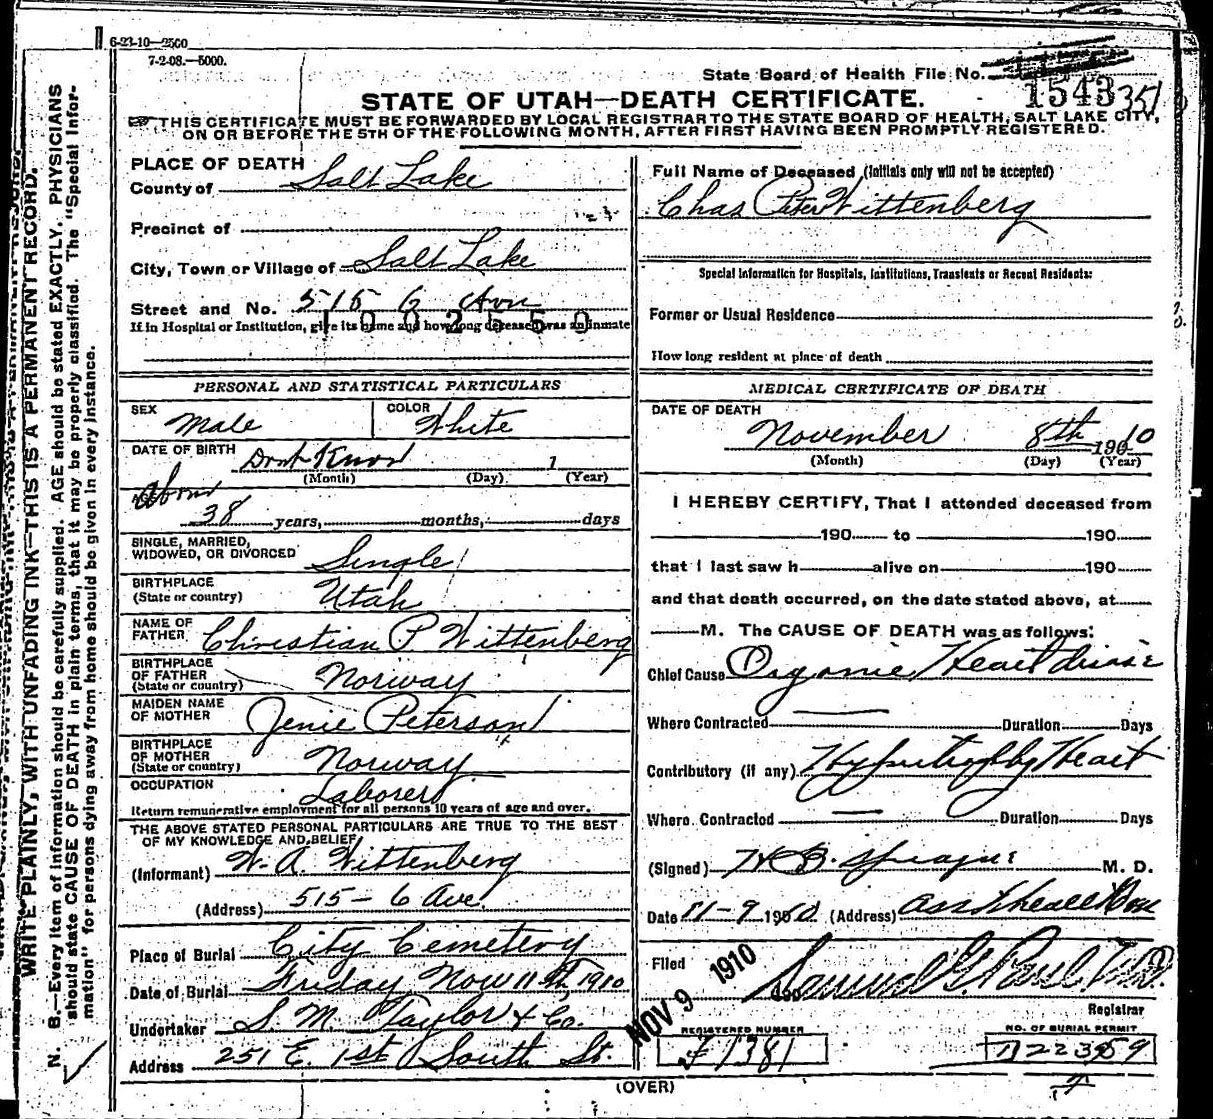 6-23-10—2500
7-2-08.—5000.
State Board of Health File No.
1543 351
STATE OF UTAH—DEATH CERTIFICATE.
THIS CERTIFICATE MUST BE FORWARDED BY LOCAL REGISTRAR TO THE STATE BOARD OF HEALTH, SALT LAKE CITY,
ON OR BEFORE THE 5TH OF THE FOLLOWING MONTH, AFTER FIRST HAVING BEEN PROMPTLY REGISTERED.
WRITE PLAINLY, WITH UNFADING INK—THIS IS A PERMANENT RECORD.
N. B.—Every item of information should be carefully supplied. AGE should be stated EXACTLY. PHYSICIANS
should state CAUSE OF DEATH in plain terms, that it may be properly classified. The "Special Infor-
mation" for persons dying away from home should be given in every instance.
PLACE OF DEATH
County of Salt Lake
Precinct of
City, Town or Village of Salt Lake
Street and No. 515 6 Ave
If in Hospital or Institution, give its name and how long deceased was an inmate
1002550
PERSONAL AND STATISTICAL PARTICULARS
SEX Male COLOR White
DATE OF BIRTH Dont Know 1
(Month) (Day) (Year)
About
38 years, months, days
SINGLE, MARRIED,
WIDOWED, OR DIVORCED Single
BIRTHPLACE
(State or country) Utah
NAME OF
FATHER Christian P Wittenberg
BIRTHPLACE
OF FATHER
(State or country) Norway
MAIDEN NAME
OF MOTHER Jenie Peterson
BIRTHPLACE
OF MOTHER
(State or country) Norway
OCCUPATION Laborer
Return remunerative employment for all persons 10 years of age and over.
THE ABOVE STATED PERSONAL PARTICULARS ARE TRUE TO THE BEST
OF MY KNOWLEDGE AND BELIEF
(Informant) W. A. Wittenberg
(Address) 515 - 6 Ave.
Place of Burial City Cemetery
Date of Burial Friday Nov 11th, 1910
Undertaker S. M. Taylor & Co.
Address 251 E. 1st South St.
Full Name of Deceased (Initials only will not be accepted)
Chas Peter Wittenberg
Special Information for Hospitals, Institutions, Transients or Recent Residents:
Former or Usual Residence
How long resident at place of death
MEDICAL CERTIFICATE OF DEATH
DATE OF DEATH
November 8th 1910
(Month) (Day) (Year)
I HEREBY CERTIFY, That I attended deceased from
190 to 190
that I last saw h alive on 190
and that death occurred, on the date stated above, at
M. The CAUSE OF DEATH was as follows:
Chief Cause Organic Heart disease
Where Contracted — Duration Days
Contributory (if any) Hypertrophy Heart
Where Contracted — Duration Days
(Signed) H B. Sprague M. D.
Date 11-9-1910 (Address)
Filed NOV 9 1910 Samuel G. Paul M.D.
Registrar
REGISTERED NUMBER
1381
NO. OF BURIAL PERMIT
(OVER)